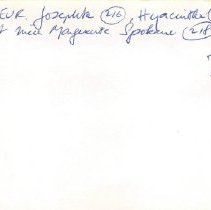 EUR. Josephte (216), Hyacinthe
et née Marguerite Spokane (218